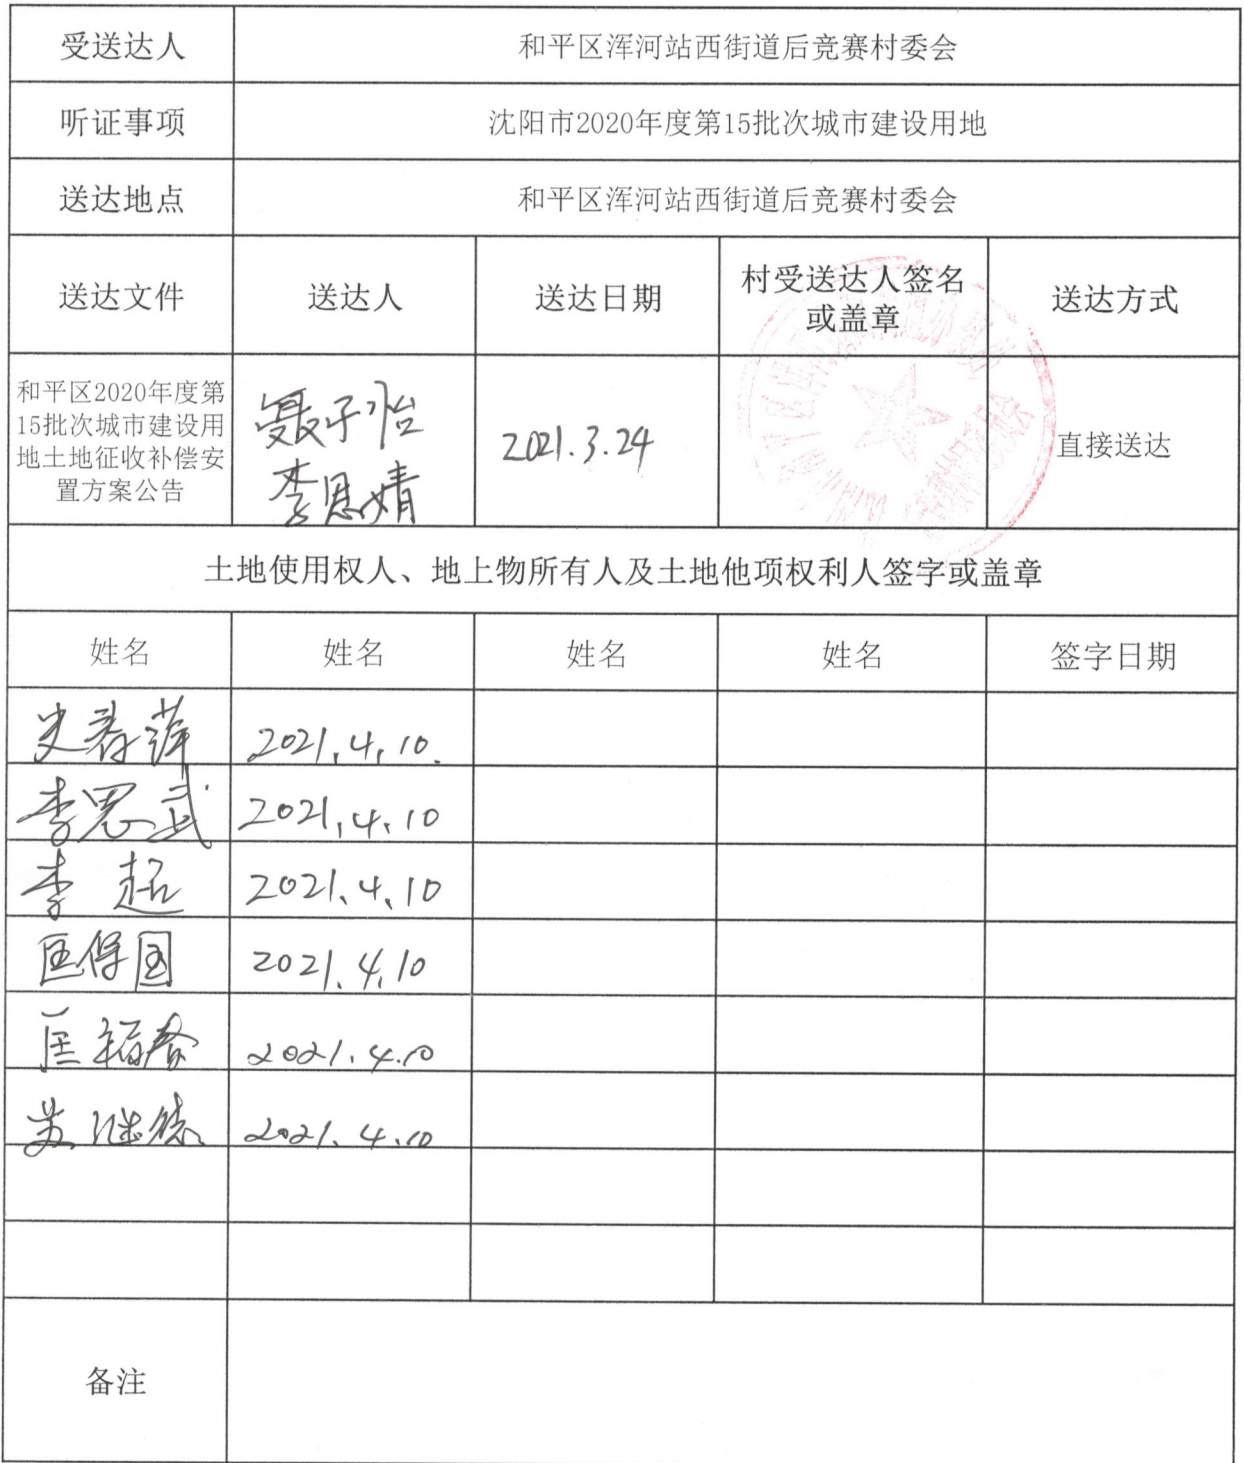 受送达人 和平区浑河站西街道后竞赛村委会
听证事项 沈阳市2020年度第15批次城市建设用地
送达地点 和平区浑河站西街道后竞赛村委会
送达文件 送达人 送达日期 村受送达人签名 送达方式
或盖章
和平区2020年度第
15批次城市建设用
地土地征收补偿安
置方案公告
聂子怡
李思婧
2021.3.24
直接送达
土地使用权人、地上物所有人及土地他项权利人签字或盖章
姓名 姓名 姓名 姓名 签字日期
史春萍 2021.4.10.
李恩武 2021.4.10
李超 2021.4.10
匡保国 2021.4.10
匡福春 2021.4.10
2021.4.10
备注